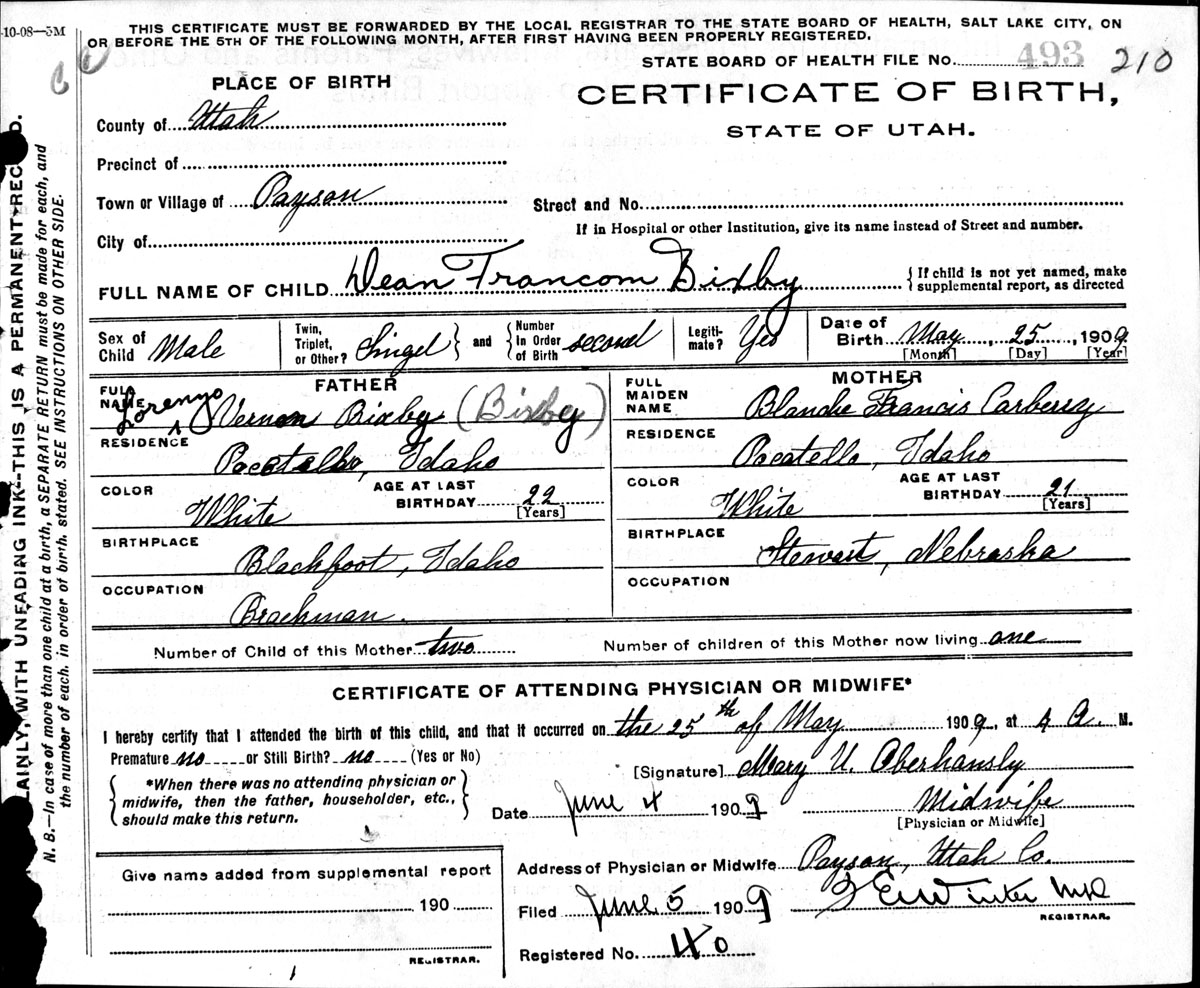 10-08—5M
THIS CERTIFICATE MUST BE FORWARDED BY THE LOCAL REGISTRAR TO THE STATE BOARD OF HEALTH, SALT LAKE CITY, ON
OR BEFORE THE 5TH OF THE FOLLOWING MONTH, AFTER FIRST HAVING BEEN PROPERLY REGISTERED.
STATE BOARD OF HEALTH FILE No. 493 210
PLACE OF BIRTH
CERTIFICATE OF BIRTH,
STATE OF UTAH.
County of Utah
Precinct of
Town or Village of Payson
Street and No.
City of
If in Hospital or other Institution, give its name instead of Street and number.
FULL NAME OF CHILD Dean Francom Bixby { If child is not yet named, make
supplemental report, as directed
Sex of Child Male
Twin, Triplet, or Other? Singel } and { Number In Order of Birth second
Legiti- mate? Yes
Date of Birth May, 25, 1909
[Month] [Day] [Year]
FATHER
FULL NAME Lorenzo Vernon Bixby (Bixby)
RESIDENCE Pocatello, Idaho
COLOR White
AGE AT LAST BIRTHDAY 22 [Years]
BIRTHPLACE Blackfoot, Idaho
OCCUPATION Brackman.
MOTHER
FULL MAIDEN NAME Blanche Francis Carberey
RESIDENCE Pocatello, Idaho
COLOR White
AGE AT LAST BIRTHDAY 21 [Years]
BIRTHPLACE Stewart, Nebraska
OCCUPATION
Number of Child of this Mother two
Number of children of this Mother now living one
CERTIFICATE OF ATTENDING PHYSICIAN OR MIDWIFE*
I hereby certify that I attended the birth of this child, and that it occurred on the 25th of May 1909, at 4 A. M.
Premature no or Still Birth? no (Yes or No)
[Signature] Mary U. Oberhansly
{ *When there was no attending physician or
midwife, then the father, householder, etc.,
should make this return. }
Date June 4 1909
Midwife
[Physician or Midwife]
Address of Physician or Midwife Payson, Utah Co.
Filed June 5 1909
Winter MD
REGISTRAR.
Registered No. 40
Give name added from supplemental report
190
REGISTRAR.
AINLY, WITH UNFADING INK--THIS IS A PERMANENT REC D.
N. B.—In case of more than one child at a birth, a SEPARATE RETURN must be made for each, and
the number of each, in order of birth, stated. SEE INSTRUCTIONS ON OTHER SIDE.